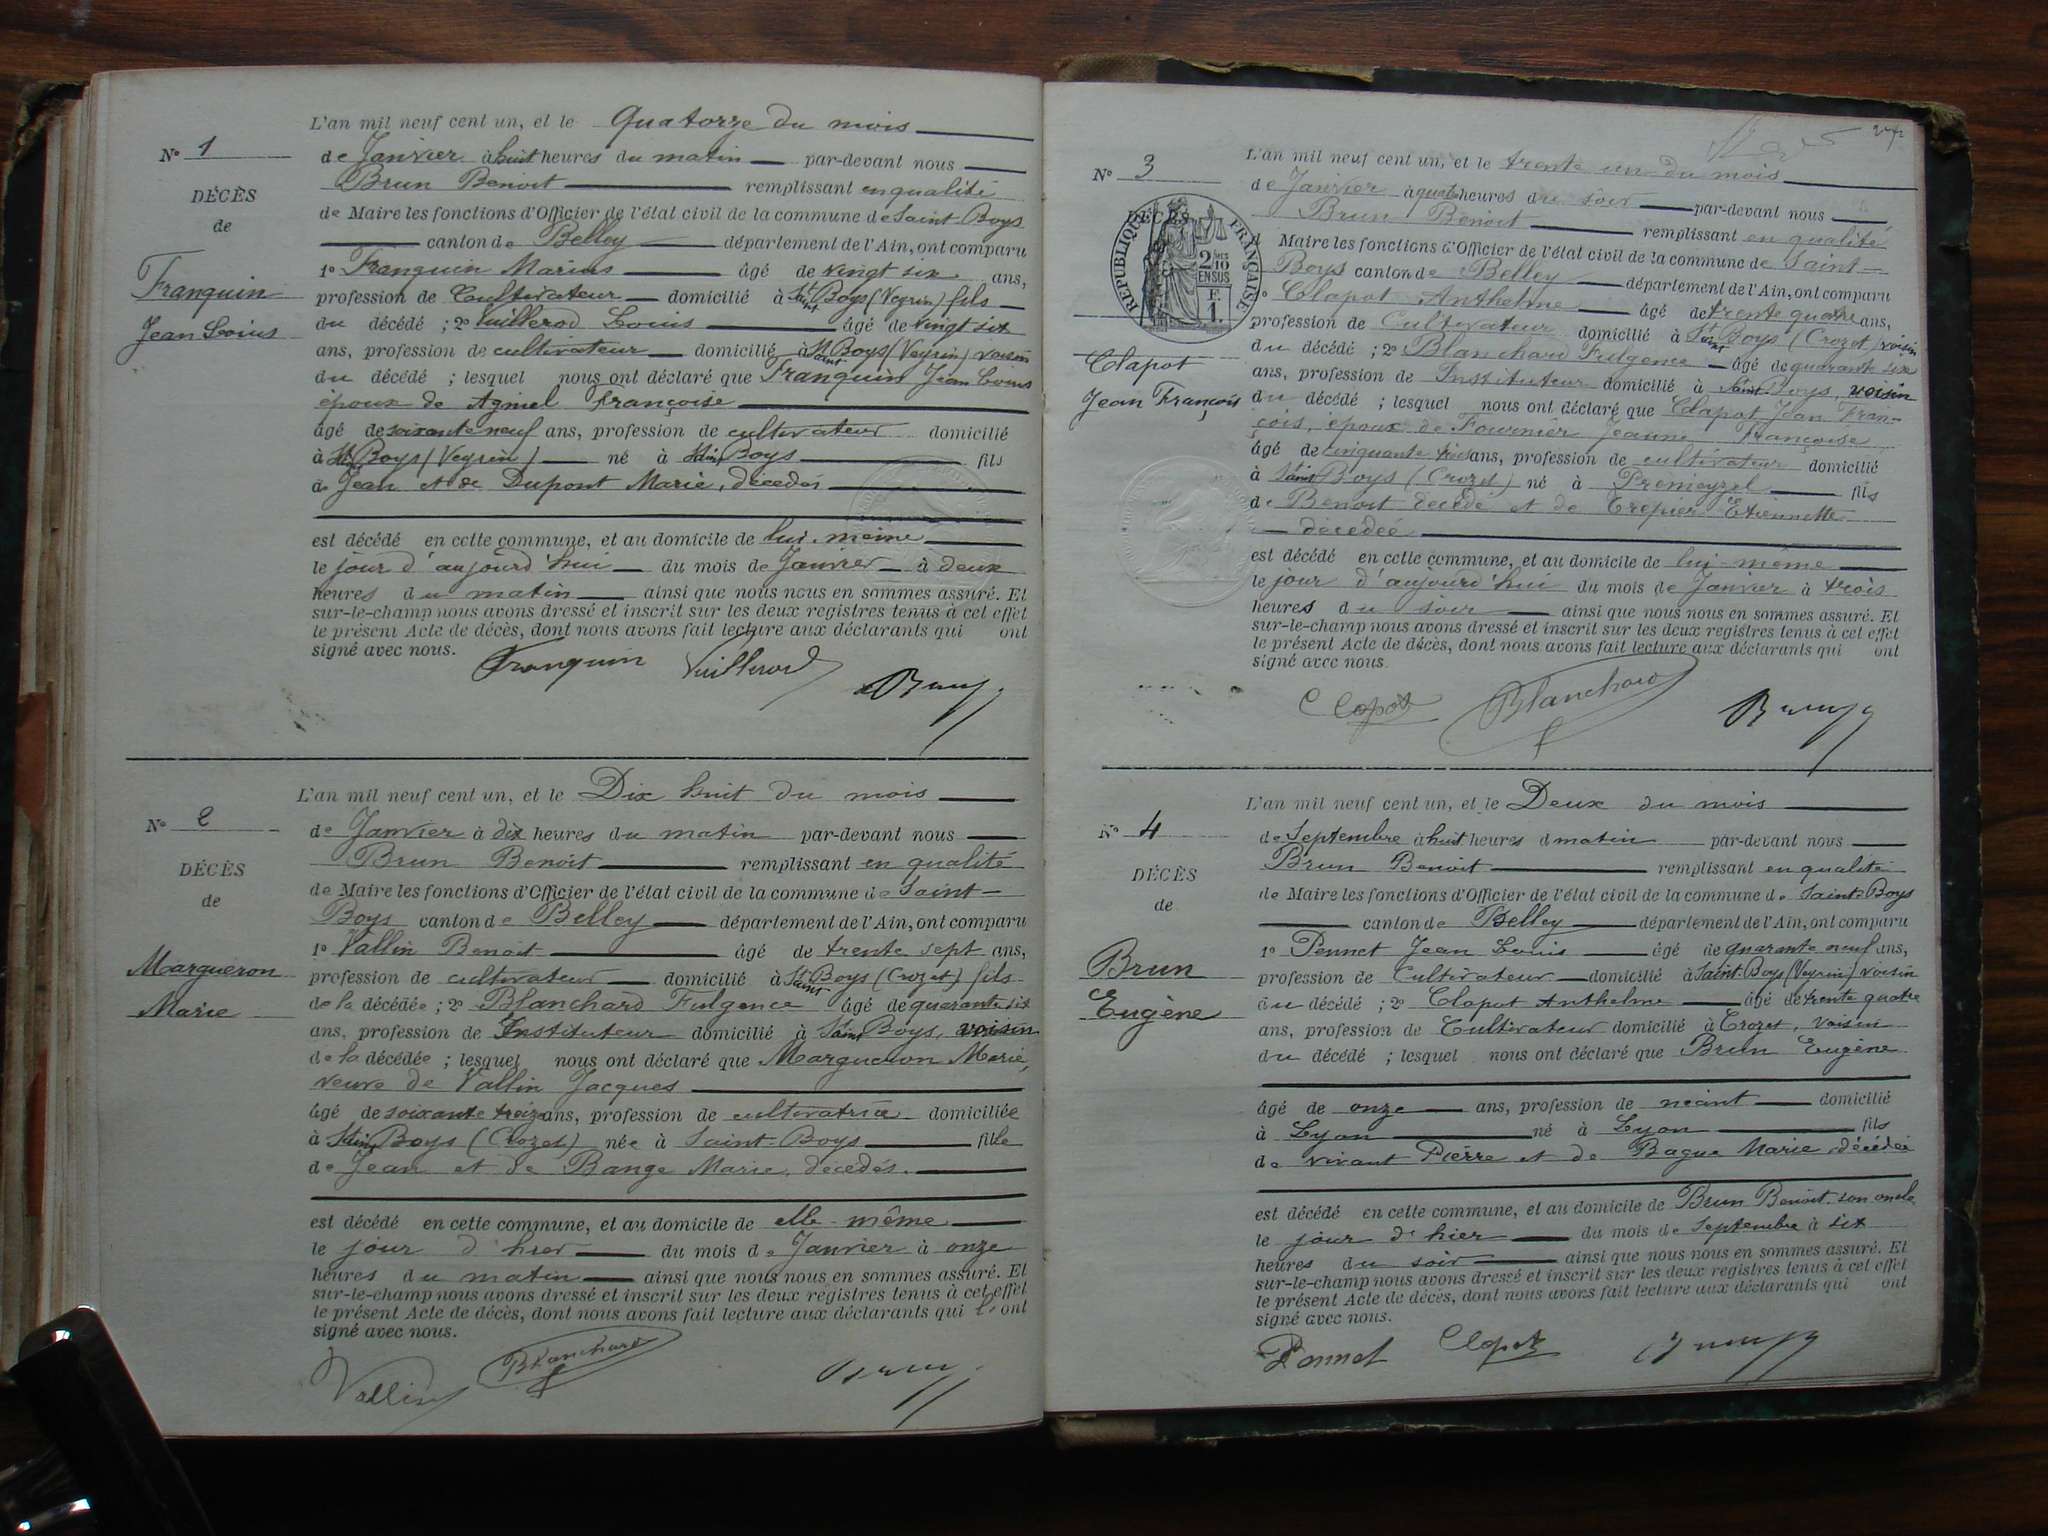 L'an mil neuf cent un, et le Quatorze du mois
N° 1
de Janvier à huit heures du matin par-devant nous
Brun Benoit remplissant en qualité
DÉCÈS
de Maire les fonctions d'Officier de l'état civil de la commune de Saint Boys
de
canton de Belley département de l'Ain, ont comparu
Franquin
1° Franquin Marius âgé de vingt six ans,
profession de Cultivateur domicilié à St Boys (Veyrin) fils
Jean Louis
du décédé ; 2° Vuillerod Louis âgé de vingt six
ans, profession de cultivateur domicilié à St Boys (Veyrin) voisin
du décédé ; lesquel nous ont déclaré que Franquin Jean Louis
époux de Françoise
âgé de soixante neuf ans, profession de cultivateur domicilié
à St Boys (Veyrin) né à Saint Boys fils
de Jean et de Dupont Marie, décédés
est décédé en cette commune, et au domicile de lui-même
le jour d'aujourd'hui du mois de Janvier à deux
heures du matin ainsi que nous nous en sommes assuré. Et
sur-le-champ nous avons dressé et inscrit sur les deux registres tenus à cet effet
le présent Acte de décès, dont nous avons fait lecture aux déclarants qui ont
signé avec nous.
Franquin Vuillerod Brun
L'an mil neuf cent un, et le Dix huit du mois
N° 2
de Janvier à dix heures du matin par-devant nous
Brun Benoit remplissant en qualité
DÉCÈS
de Maire les fonctions d'Officier de l'état civil de la commune de Saint-
de
Boys canton de Belley département de l'Ain, ont comparu
1° Vallin Benoit âgé de trente sept ans,
Margueron
profession de cultivateur domicilié à St Boys (Crozet) fils
Marie
de la décédée ; 2° Blanchard Fulgence âgé de quarante six
ans, profession de Instituteur domicilié à Saint Boys, voisin
de la décédée ; lesquel nous ont déclaré que Margueron Marie,
veuve de Vallin Jacques
âgé de soixante treize ans, profession de cultivatrice domiciliée
à Saint Boys (Crozet) née à Saint-Boys fille
de Jean et de Bange Marie, décédés.
est décédé en cette commune, et au domicile de elle-même
le jour d'hier du mois de Janvier à onze
heures du matin ainsi que nous nous en sommes assuré. Et
sur-le-champ nous avons dressé et inscrit sur les deux registres tenus à cet effet
le présent Acte de décès, dont nous avons fait lecture aux déclarants qui l'ont
signé avec nous.
Vallin Blanchard Brun
L'an mil neuf cent un, et le trente un du mois
N° 3
de Janvier à quatre heures du soir par-devant nous
Brun Benoit remplissant en qualité
DÉCÈS
RÉPUBLIQUE FRANÇAISE
2/10 EN SUS
F. 1.
Maire les fonctions d'Officier de l'état civil de la commune de Saint-
Boys canton de Belley département de l'Ain, ont comparu
Clapot Anthelme âgé de trente quatre ans,
profession de Cultivateur domicilié à St Boys (Crozet) voisin
Clapot
du décédé ; 2° Blanchard Fulgence âgé de quarante six
ans, profession de Instituteur domicilié à Saint Boys, voisin
Jean François
du décédé ; lesquel nous ont déclaré que Clapot Jean Fran-
çois, époux de Fournier Jeanne Françoise
âgé de cinquante trois ans, profession de cultivateur domicilié
à Saint Boys (Crozet) né à Premeyzel fils
de Benoit décédé et de Trépier Etiennette
décédée
est décédé en cette commune, et au domicile de lui-même
le jour d'aujourd'hui du mois de Janvier à trois
heures du soir ainsi que nous nous en sommes assuré. Et
sur-le-champ nous avons dressé et inscrit sur les deux registres tenus à cet effet
le présent Acte de décès, dont nous avons fait lecture aux déclarants qui ont
signé avec nous.
Clapot Blanchard Brun
L'an mil neuf cent un, et le Deux du mois
N° 4
de Septembre à huit heures d matin par-devant nous
Brun Benoit remplissant en qualité
DÉCÈS
de Maire les fonctions d'Officier de l'état civil de la commune de Saint-Boys
de
canton de Belley département de l'Ain, ont comparu
1° Pennet Jean Louis âgé de quarante neuf ans,
Brun
profession de Cultivateur domicilié à Saint-Boys (Veyrin) voisin
Eugène
du décédé ; 2° Clapot Anthelme âgé de trente quatre
ans, profession de Cultivateur domicilié à Crozet, voisin
du décédé ; lesquel nous ont déclaré que Brun Eugène
âgé de onze ans, profession de néant domicilié
à Lyon né à Lyon fils
de vivant Pierre et de Bague Marie décédée
est décédé en cette commune, et au domicile de Brun Benoit, son oncle
le jour d'hier du mois de Septembre à six
heures du soir ainsi que nous nous en sommes assuré. Et
sur-le-champ nous avons dressé et inscrit sur les deux registres tenus à cet effet
le présent Acte de décès, dont nous avons fait lecture aux déclarants qui ont
signé avec nous.
Pennet Clapot Brun